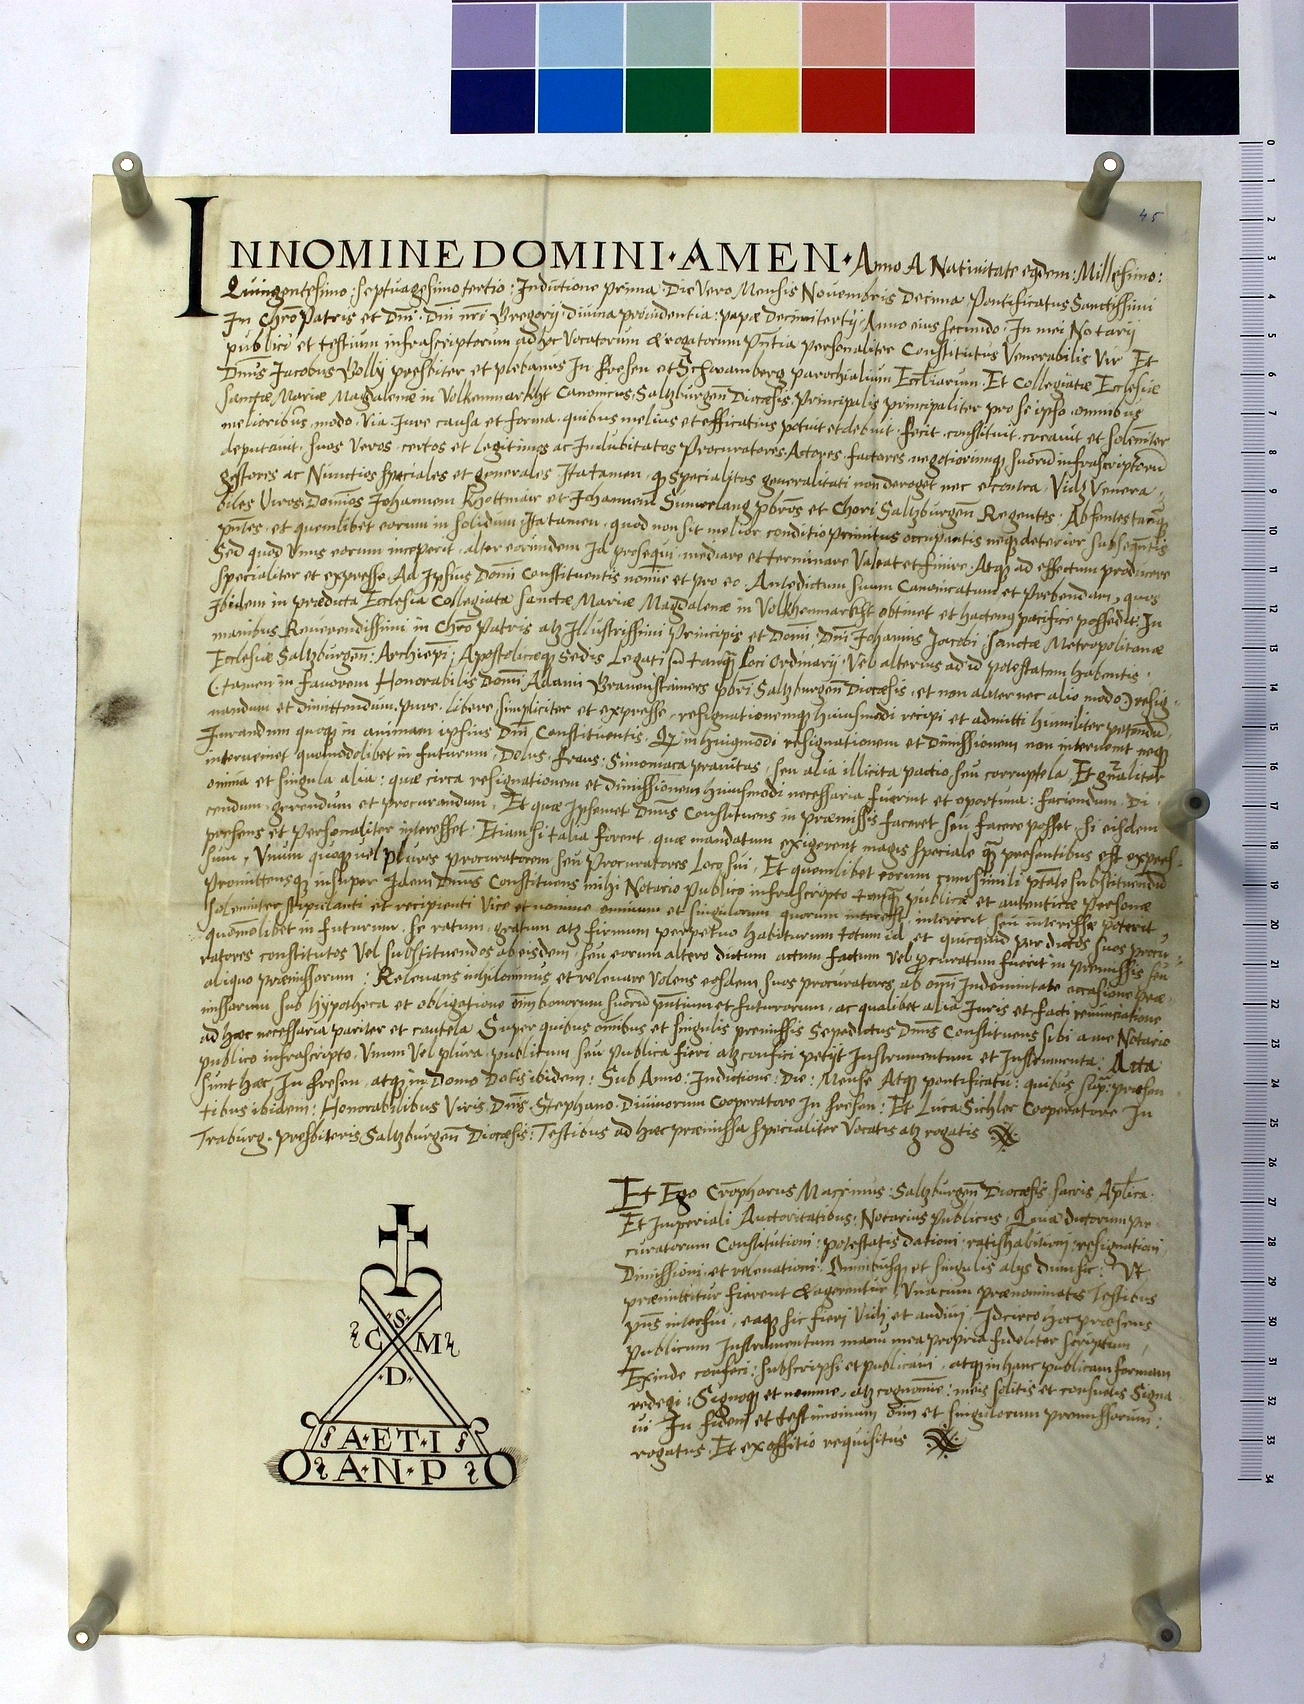 45
IN NOMINE DOMINI · AMEN · Anno A Nativitate eiusdem: Millesimo:
Quingentesimo: septuagesimo tertio: Indictione prima: Die Vero Mensis Novembris Decima: Pontificatus Sanctissimi
In Chro Patris et Dni: Dni nri Gregorij: Divina providentia: papæ Decimitertij: Anno eius secundo: In mei Notarij
publici et testium infrascriptorum ad hoc Vocatorum & rogatorum pntia personaliter Constitutus Venerabilis Vir Et
Dnus Jacobus presbiter et plebanus In fresen et Schwamberg parochialium Eccliarum: Et Collegiatæ Ecclesiæ
Sanctæ Mariæ Magdalenæ in Volkenmarkht Canonicus: Saltzburgen Diocæsis: Principalis principaliter pro se ipso, omnibus
melioribus modo: Via Jure causa et forma: quibus melius et efficatius potuit et debuit: fecit, constituit, creauit et solemniter
deputauit, suos Veros, certos et legitimos ac Indubitatos Procuratores: Actores, factores, negotiorumq suoru infrascriptoru
gestores ac Nuntios speciales et generales Ita tamen, q specialitas generalitati non deroget nec e contra: Vidz Venera
biles Viros, Dominos Johannem et Johannem pbros et Chori Saltzburgen Regentes: Absentes tanq
pntes, et quemlibet eorum in solidum Ita tamen, quod non sit melior conditio primitus occupantis neq deterior subsequentis
Sed quod Vnus eorum inceperit, alter eorundem Id prosequi, mediare et terminare Valeat et finire: Atq ad effectum producere
specialiter et expresse: Ad Ipsius Domi Constituentis nomine et pro eo: Antedictum suum Canonicatum et Prebendam, quos
Ibidem in prædicta Ecclesia Collegiata Sanctæ Mariæ Magdalenæ in Volkhenmarkht obtinet et hacten pacifice possedit: In
manibus Reuerendissimi in Chro Patris atz Illustrissimi Principis et Domi: Dni Johannis Jacobi: Sanctæ Metropolitanæ
Ecclesiæ Saltzburgen: Archiepi: Apostolicæq Sedis Legati: tanq Loci Ordinarij: Vel alterius ad id potestatem habentis:
(tamen in fauorem Honorabilis Domi Adami pbri Saltzburgen Diocæsis: et non aliter nec alio modo:) resig
nandum et dimittendum: pure: libere: simpliciter et expresse: resignationemq huiusmodi recipi et admitti humiliter petendu
Jurandum quoq in animam ipsius Dni Constituentis: in huiusmodi resignationem et Dimissionem non interuenit neq
interueniet quomodolibet in futurum: Dolus: fraus: Simoniaca prauitas: seu alia illicita pactio, seu corruptela: Et gnaliter
omnia et singula alia: quæ circa resignationem et dimissionem huiusmodi necessaria fuerint et oportuna: faciendum: Di
cendum: gerendum et procurandum: Et quæ Ipsemet Dnus Constituens in præmissis faceret seu facere posset: si eisdem
præsens et personaliter interesset: Etiam si talia forent, quæ mandatum exigerent magis speciale q presentibus est expres
sum, Vnum quoq vel plures procuratorem seu Procuratores Loco sui, Et quemlibet eorum cum simili ptate substituendu
Promittensq insuper Idem Dnus Constituens mihi Notario publico infrascripto tanq publicæ et autenticæ personæ
solemniter stipulanti et recipienti Vice et nomine omnium et singulorum, quorum interest, intererit seu interesse poterit
quomolibet in futurum: se ratum: gratum atz firmum perpetuo habiturum totum id, et quicquid per dictos suos procu
ratores constitutos Vel substituendos ab eisdem seu eorum altero dictum actum factum Vel pcuratum fuerit in premissis seu
aliquo præmissorum: Releuans nihilominus et releuare Volens eosdem suos procuratores, ab omi Indemnitate occasione præ
missorum sub Hypotheca et obligatione oim bonorum suoru pntium et futurorum, ac qualibet alia Juris et facti renunciatione
ad hæc necessaria pariter et cautela: Super quibus omibus et singulis premissis Sepedictus Dnus Constituens sibi a me Notario
publico infrascripto, Vnum Vel plura, publicum seu publica fieri atz confici petijt Instrumentum et Instrumenta: Acta
sunt hæc In fresen, atq in Domo Dotis ibidem: Sub Anno: Indictione: Die: Mense Atq pontificatu: quibus sup: præsen
tibus ibidem: Honorabilibus Viris Dnis: Stephano Diuinorum Cooperatore In fresen: Et Luca Sichler Cooperatore In
Traburg, presbiteris Saltzburgen Diocæsis: Testibus ad hæc præmissa specialiter Vocatis atz rogatis
Et Ego Crophorus Maximus: Saltzburgen Diocæsis sacris Aplica:
Et Imperiali Auctoritatibus: Notarius Publicus: Quia dictorum pro
curatorum Constitutioni: potestatis dationi: ratihabitioni: resignationi
Dimissioni: et releuationi: Omnibusq et singulis alijs dum sic: Vt
præmittitur fierent & agerentur: Vna cum prænominatis Testibus
pns interfui, eaq sic fieri Vidi et audiui: Idcirco hoc præsens
Publicum Instrumentum manu mea propria fideliter scriptum,
Exinde confeci: subscripsi et publicaui, atq in hanc publicam formam
redegi: Signoq et nomine, atz cognomine: meis solitis et consuetis Signa
ui In fidem et testimonium oim et singulorum premissorum:
rogatus: Et ex offitio requisitus
S.
C M
·D·
A·ET·I
A·N·P